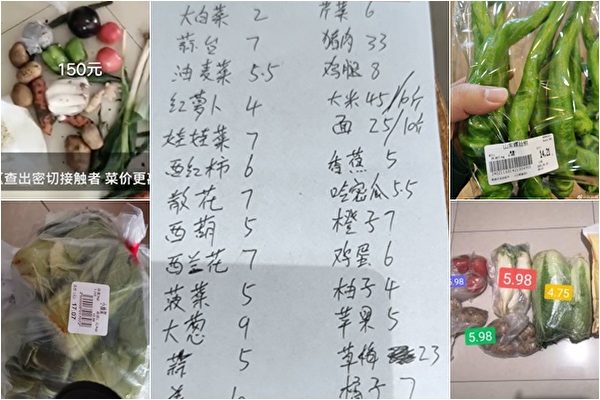 150元
查出密切接触者 菜价更高
大白菜 2
蒜台 7
油麦菜 5.5
红萝卜 4
娃娃菜 7
西红柿 6
散花 7
西葫 5
西兰花 7
菠菜 5
大葱 9
蒜 5
芹菜 6
猪肉 33
鸡腿 8
大米 45/10斤
面 25/10斤
香蕉 5
哈密瓜 5.5
橙子 7
鸡蛋 6
柚子 4
苹果 5
草梅 23
橘子 7
山东螺丝椒
14.21
17.07
5.98
5.98
4.75
5.98